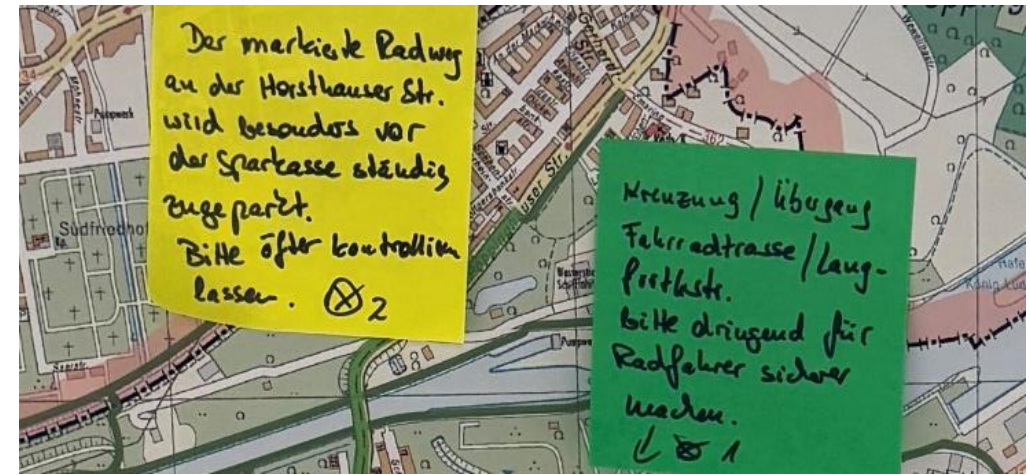 Der markierte Radweg
an der Horsthauser Str.
wird besonders vor
der Sparkasse ständig
zugeparkt.
Bitte öfter kontrollieren
lassen. ⊗ 2
Kreuzung / Übergang
Fahrradtrasse / Lang-
forthstr.
Bitte dringend für
Radfahrer sicherer
machen.
↓ ⊗ 1
Südfriedhof
Pumpwerk
user Str.